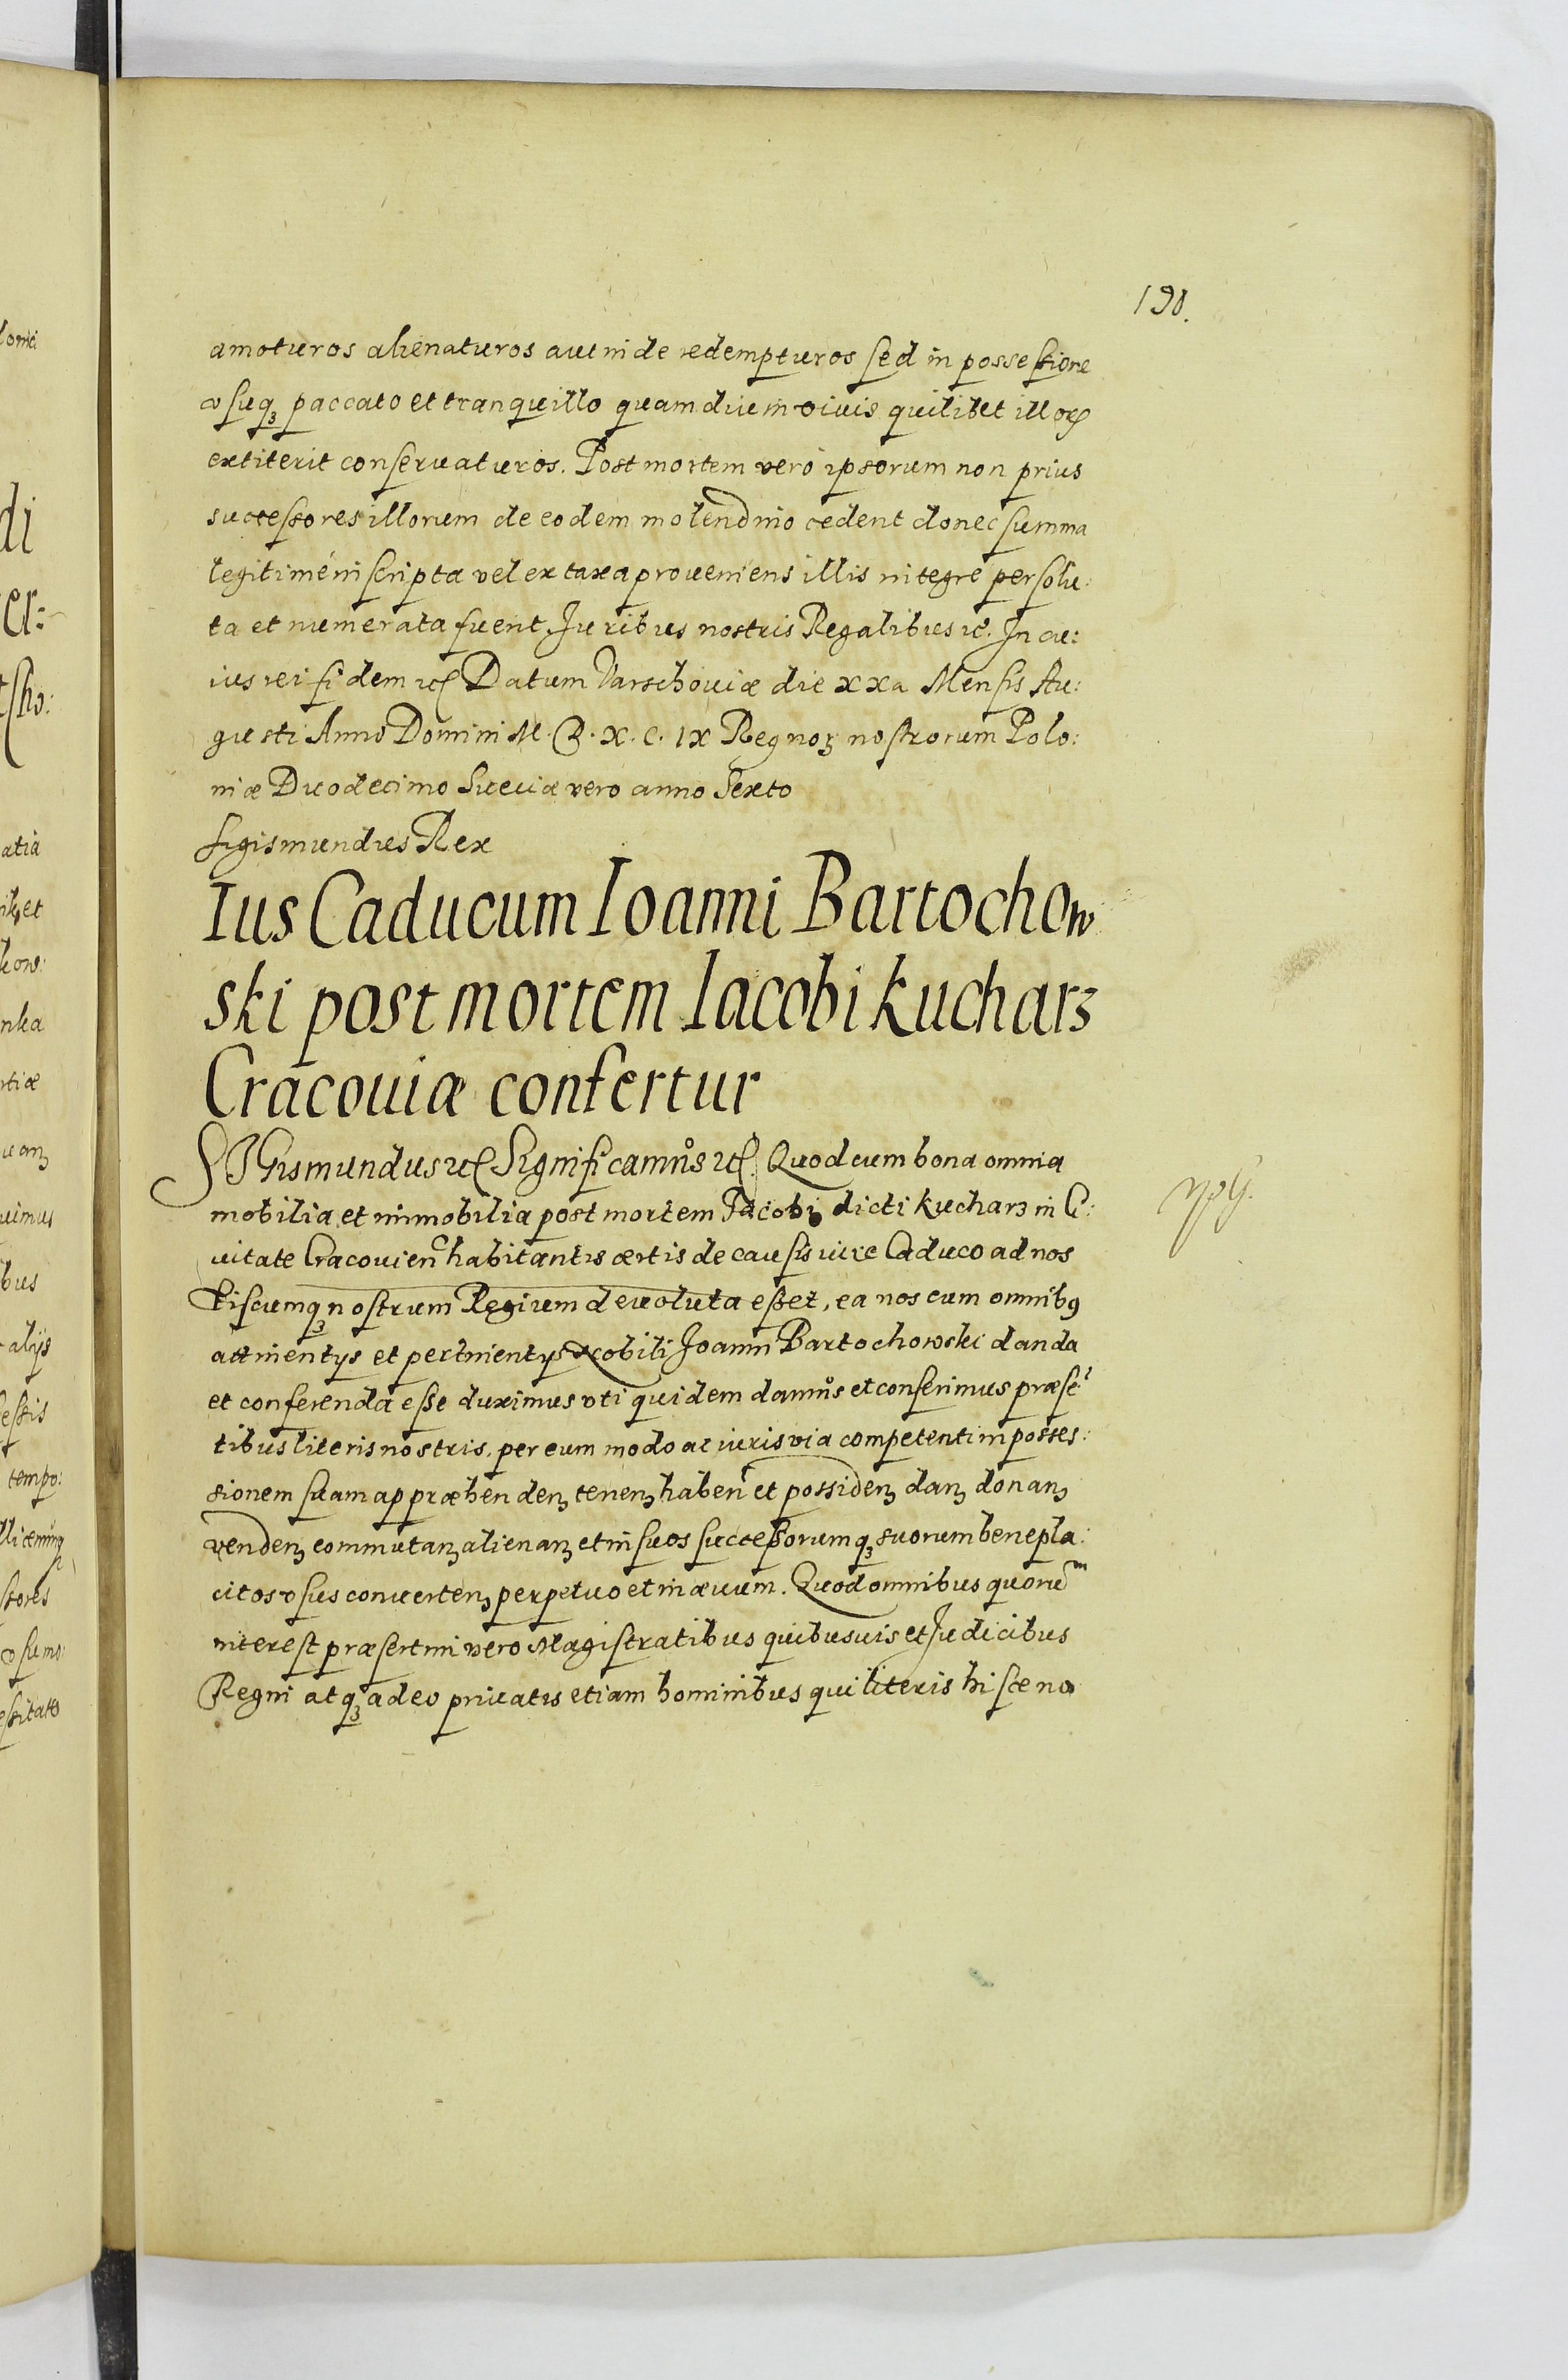 190.
amoturos alienaturos aut inde redempturos sed in possessione
usuq₃ paccato et tranquillo quamdiu in viuis quilibet illoꝝ
extiterit conseruaturos. Post mortem vero ipsorum non prius
successores illorum de eodem molendino cedent donec summa
legitimé inscripta vel ex taxa proueniens illis integre persolu:
ta et numerata fuerit Juribus nostris Regalibus etc. In cu:
ius rei fidem etc Datum Varschouiæ die xxa Mensis Au:
gusti Anno Domini M. D. X. C. IX Regnoꝝ nostrorum Polo:
niæ Duodecimo Sueciæ vero anno Sexto
Sigismundus Rex
Ius Caducum Ioanni Bartochow
ski post mortem Iacobi Kucharz
Cracouiæ confertur
SIGismundus etc Significamus etc. Quod cum bona omnia
mobilia et immobilia post mortem Jacobi dicti Kucharz in Ci:
uitate Cracouien habitantis certis de causis iure Caduco ad nos
fiscumq₃ nostrum Regium deuoluta esset, ea nos cum omnibꝰ
attinentys et pertinentys Nobili Joanni Bartochowski danda
et conferenda esse duximus vti quidem damus et conferimus præse
tibus literis nostris, per eum modo ac iuris via competenti in posses:
sionem suam appræhenden₃ tenen₃ haben et possiden₃ dan₃ donan₃
venden₃ commutan₃ alienan₃ et in suos successorumq₃ suorum benepla:
citos vsus conuerten₃ perpetuo et in æuum. Quod omnibus quoru͞m
interest præsertim vero Magistratibus quibusuis et Judicibus
Regni atq₃ adeo priuatis etiam hominibus qui literis hisce no